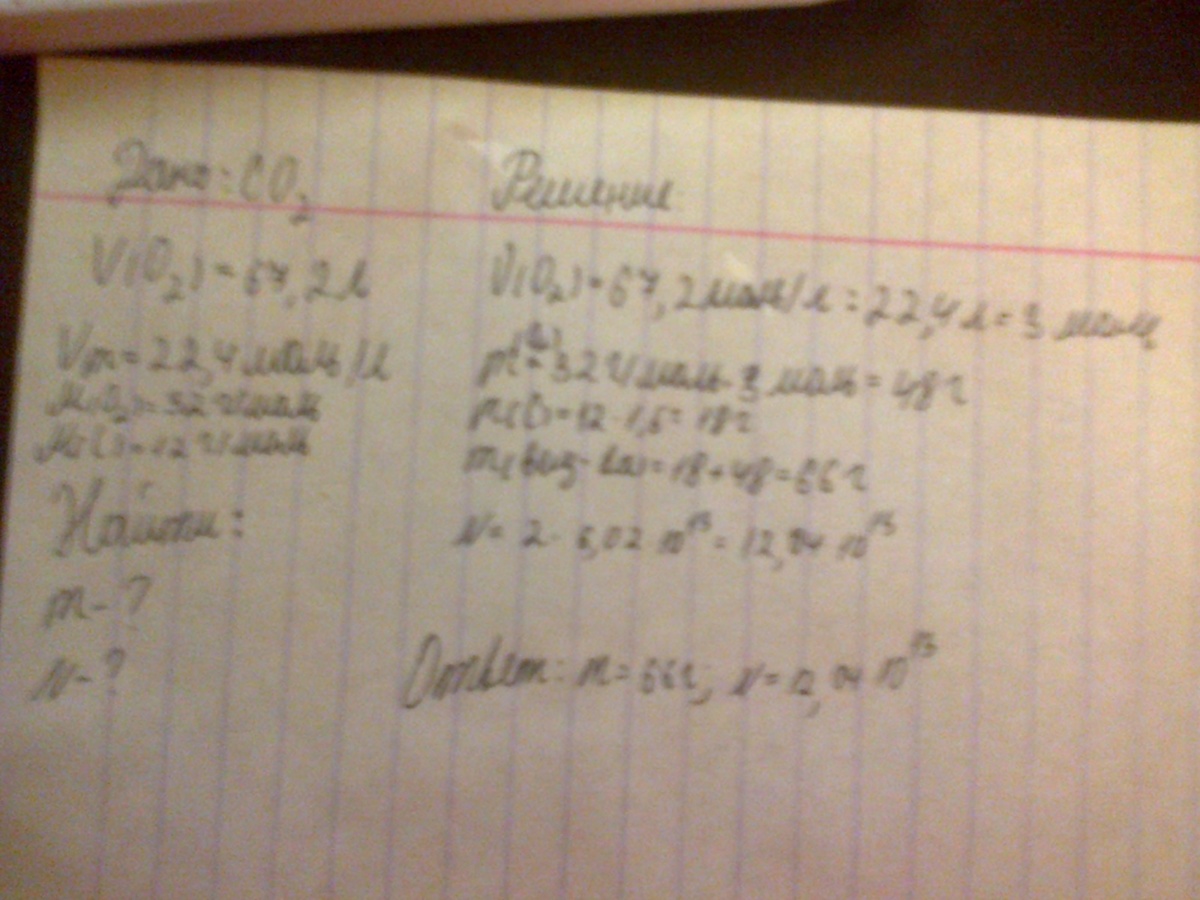 Дано: CO2
V(O2) = 67,2 л
Vm = 22,4 моль/л
M(O2) = 32 г/моль
M(C) = 12 г/моль
Найти:
m - ?
N - ?
Решение
V(O2) = 67,2 моль/л : 22,4 л = 3 моль
32 г/моль · 3 моль = 48 г
m(C) = 12 · 1,5 = 18 г
= 18 + 48 = 66 г
N = 2 · 6,02 · 10²³ = 12,04 · 10²³
Ответ: m = 66 г; N = 12,04 · 10²³